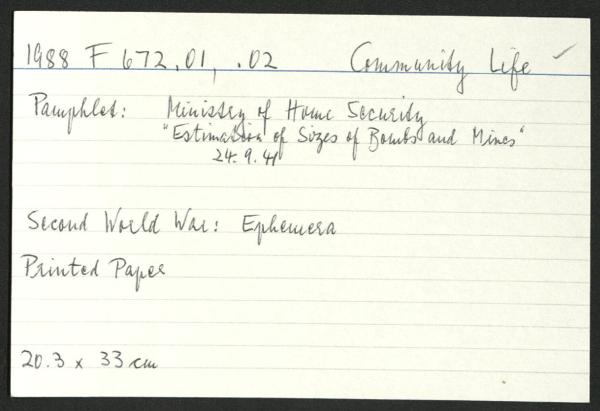 1988 F 672.01, .02 Community Life ✓
Pamphlet: Ministry of Home Security
"Estimation of Sizes of Bombs and Mines"
24.9.41
Second World War: Ephemera
Printed Paper
20.3 x 33 cm